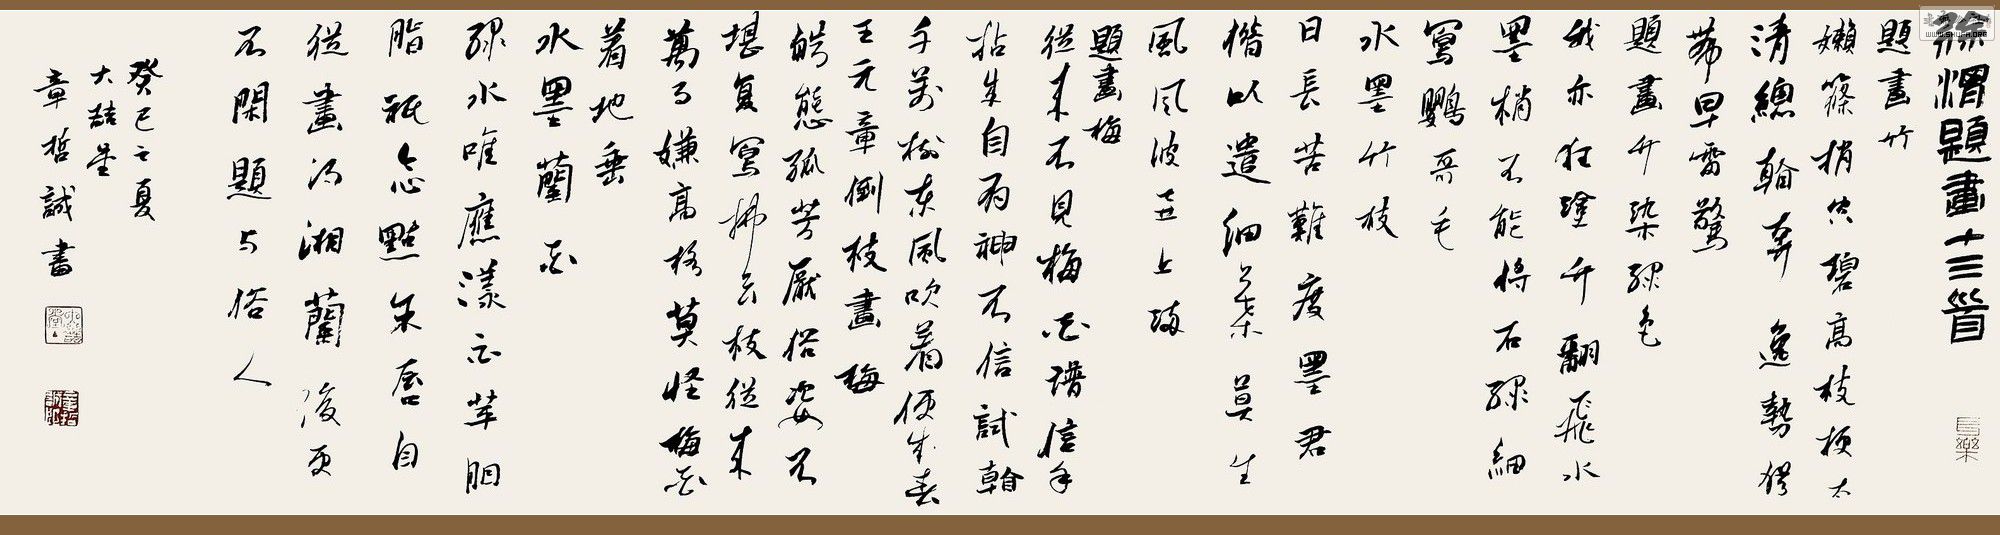 徐渭題畫十三首
題畫竹
嫩篠捎空碧高枝梗太
清總輸奔逸勢猶
帶早雷驚
題畫竹染綠色
我亦狂塗竹翻飛水
墨梢不能將石綠細
寫鸚哥毛
水墨竹枝
日長苦難度墨君
楷以遣細葉莫生
風風波世上滿
題畫梅
從來不見梅花譜信手
拈來自有神不信試翰
千萬樹東風吹着便成春
王元章倒枝畫梅
皓態孤芳壓俗姿不
堪復寫拂雲枝從來
萬事嫌高格莫怪梅花
着地垂
水墨蘭花
綠水唯應漾白蘋胭
脂祇念點朱唇自
從畫得湘蘭後更
不閑題与俗人
癸巳之夏
大喆堂
章哲誠書